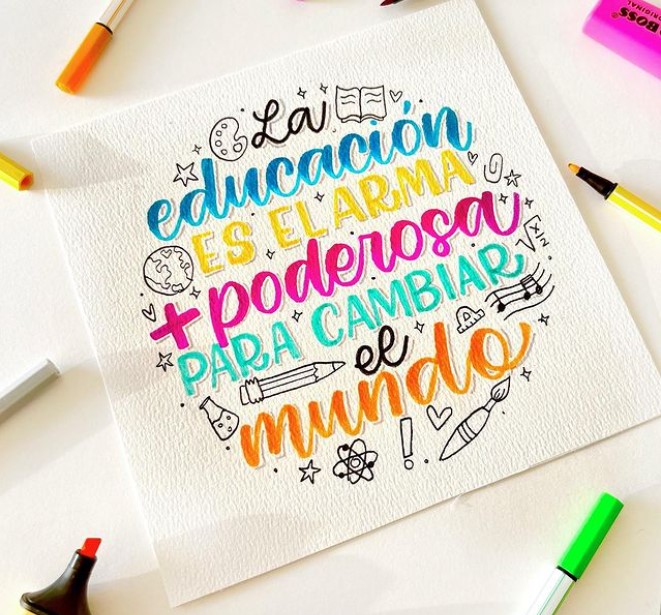 La
educación
ES EL ARMA
+ poderosa
PARA CAMBIAR
el
mundo
BOSS
ORIGINAL